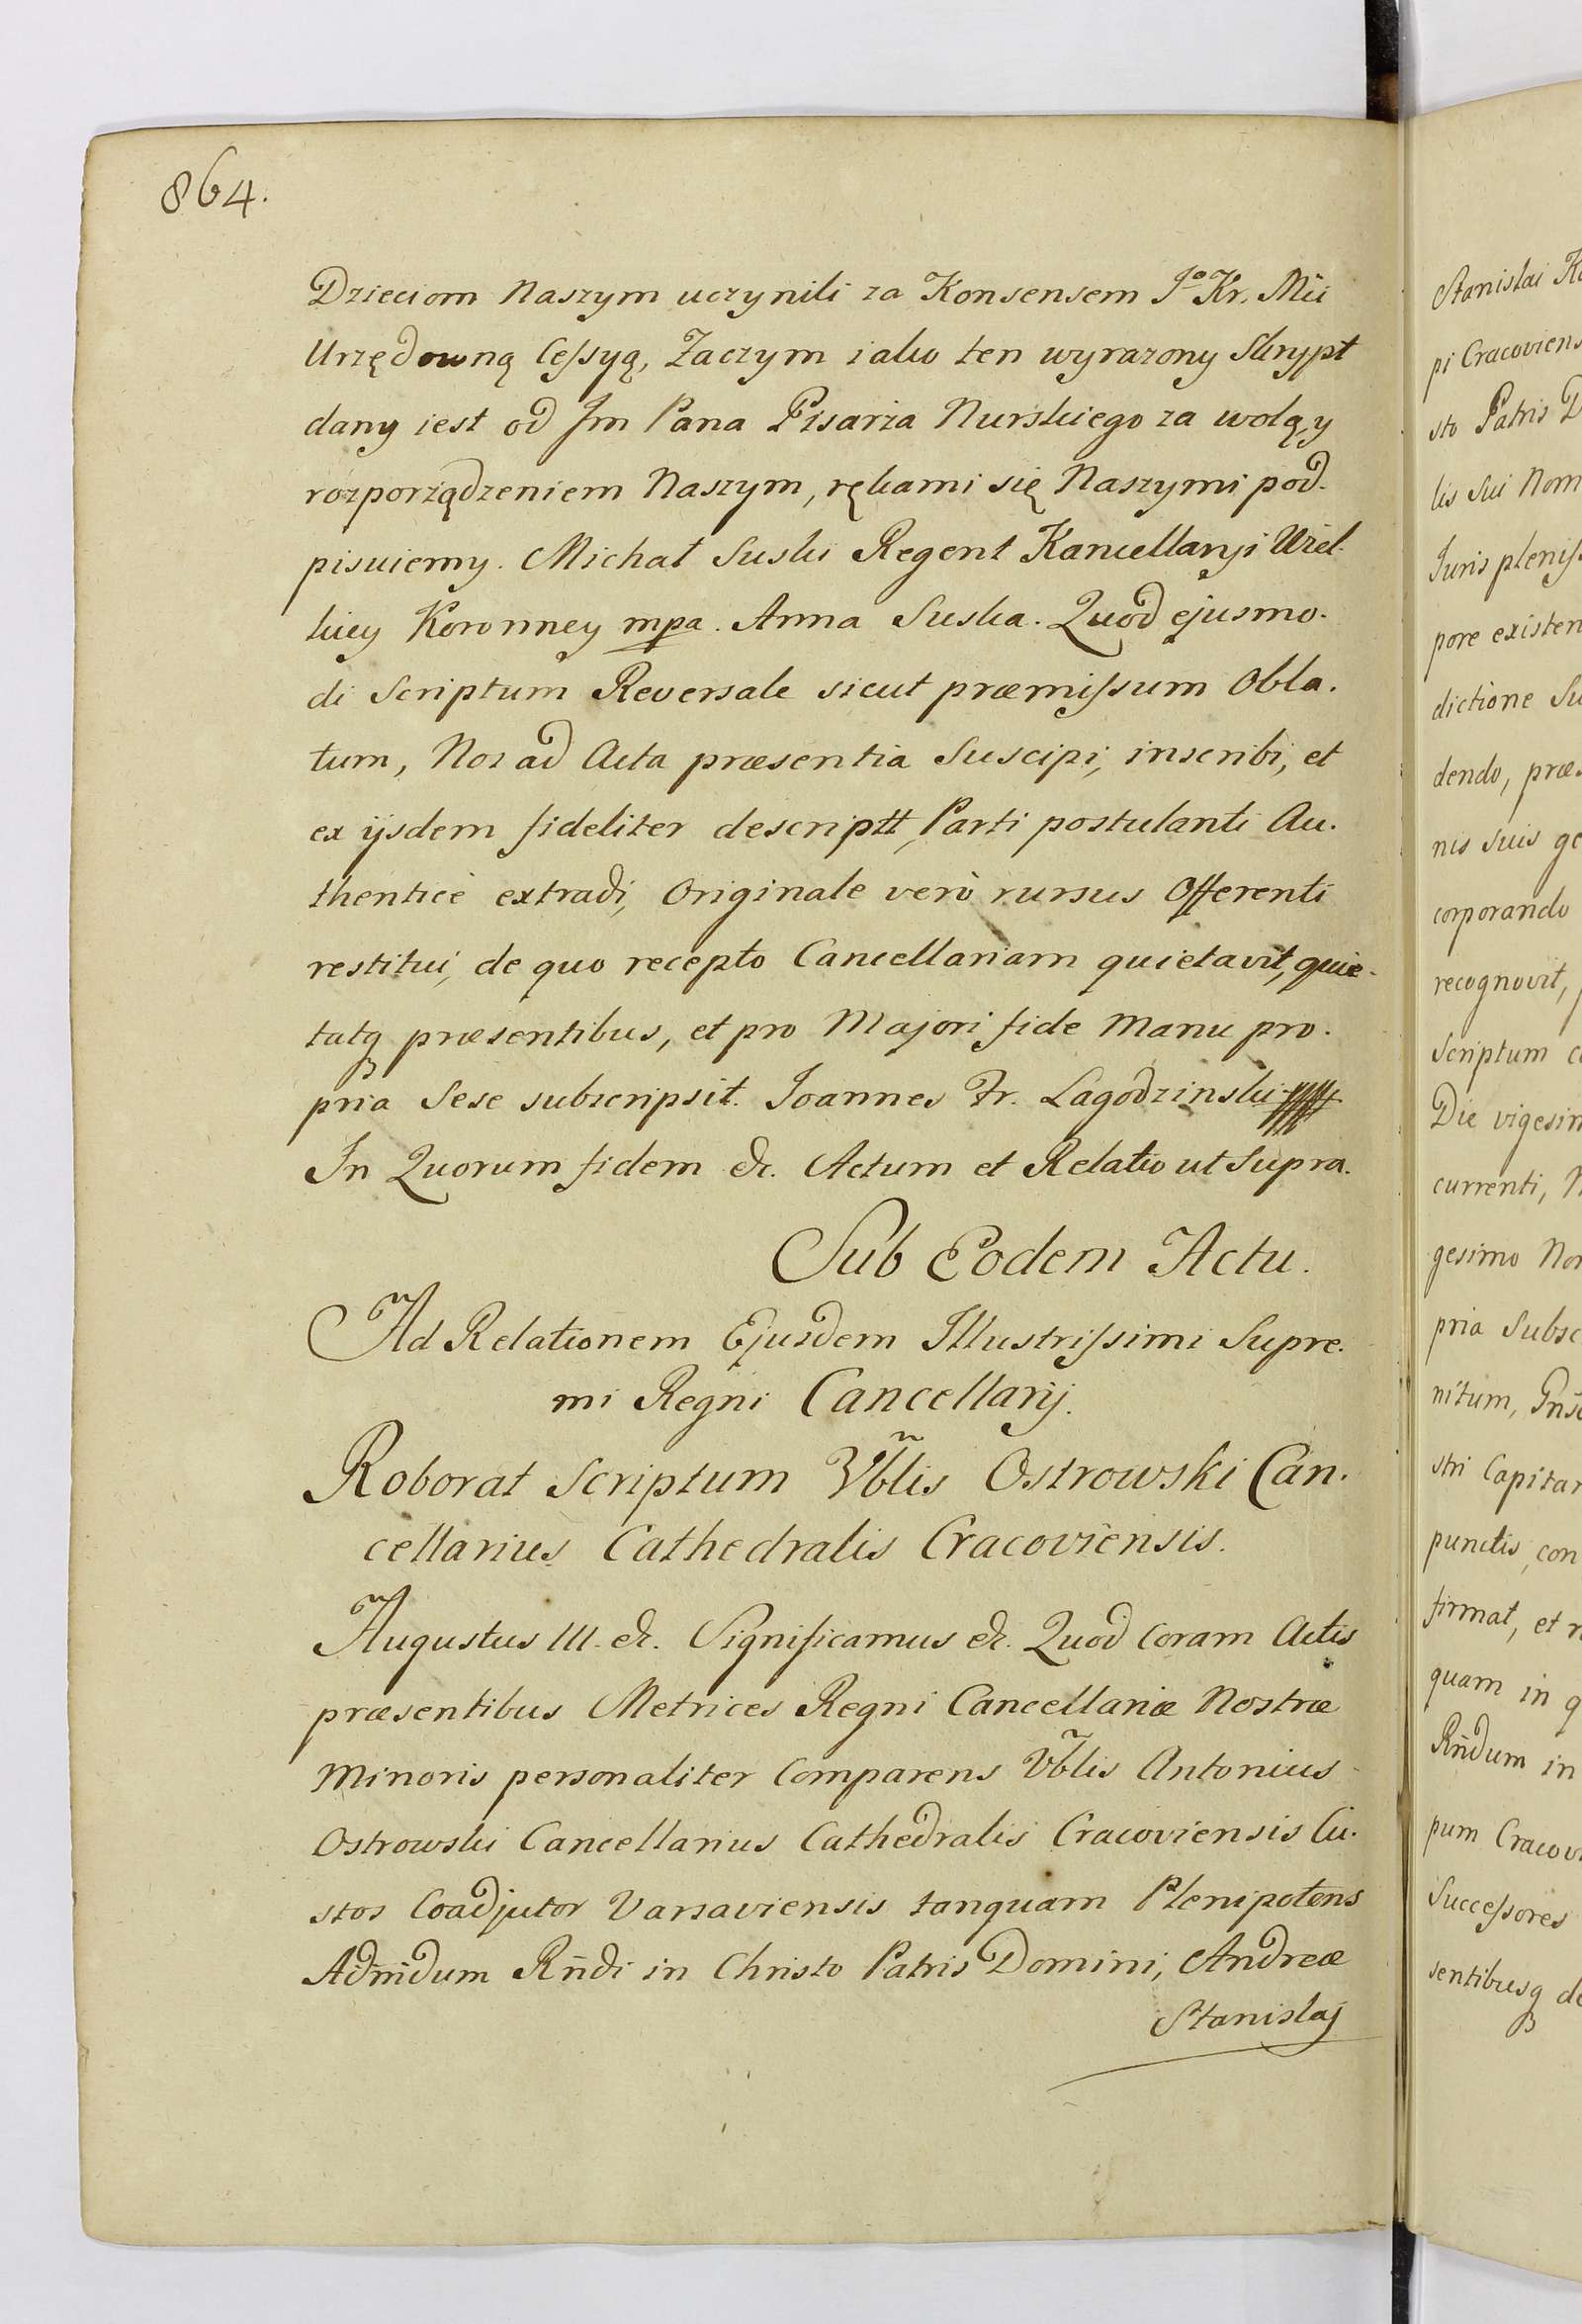 864.
Dzieciom Naszym uczynili za Konsensem Jo Kr. Mci
Urzędowną Cessyą, Zaczym iako ten wyrazony Skrypt
dany iest od Jm Pana Pisarza Nurskiego za wolą, y
rozporządzeniem Naszym, rękami się Naszymi pod-
pisuiemy. Michał Suski Regent Kancellaryi Wiel-
kiey Koronney mpa. Anna Suska. Quod ejusmo-
di Scriptum Reversale sicut præmissum Obla-
tum, Nos ad Acta præsentia Suscipi, inscribi, et
ex ijsdem fideliter descriptt, Parti postulanti Au-
thenticè extradi, Originale verò rursus Offerenti
restitui, de quo recepto Cancellariam quietavit, quie-
tatq præsentibus, et pro Majori fide Manu pro-
pria Sese subscripsit. Joannes Fr. Lagodzinski
In Quorum fidem &c. Actum et Relatio ut Supra.
Sub Eodem Actu.
Ad Relationem Ejusdem Illustrissimi Supre-
mi Regni Cancellarij.
Roborat Scriptum Vblis Ostrowski Can-
cellarius Cathedralis Cracoviensis.
Augustus III. &c. Significamus &c. Quod Coram Actis
præsentibus Metrices Regni Cancellariæ Nostræ
Minoris personaliter Comparens Vblis Antonius
Ostrowski Cancellarius Cathedralis Cracoviensis Cu-
stos Coadjutor Varsaviensis tanquam Plenipotens
Adm̃dum Rñdi in Christo Patris Domini, Andreæ
Stanislaj
Stanislai
pi Cracoviens
sto Patris D
lis Sui Nom
Juris pleniss
pore existen
dictione Su
dendo, præs
nis suis ge
corporando
recognovit,
Scriptum c
Die vigesim
currenti, N
gesimo Non
pria Subsc
nitum,
stri Capitan
punctis, con
firmat, et r
quam in q
Rñdum in
pum Cracovi
Successores
sentibusq de